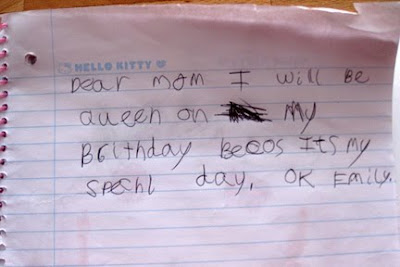 HELLO KITTY
Dear mom I will Be
queen on My
BRithday Becos ITs my
Spechl day, OK Emily.